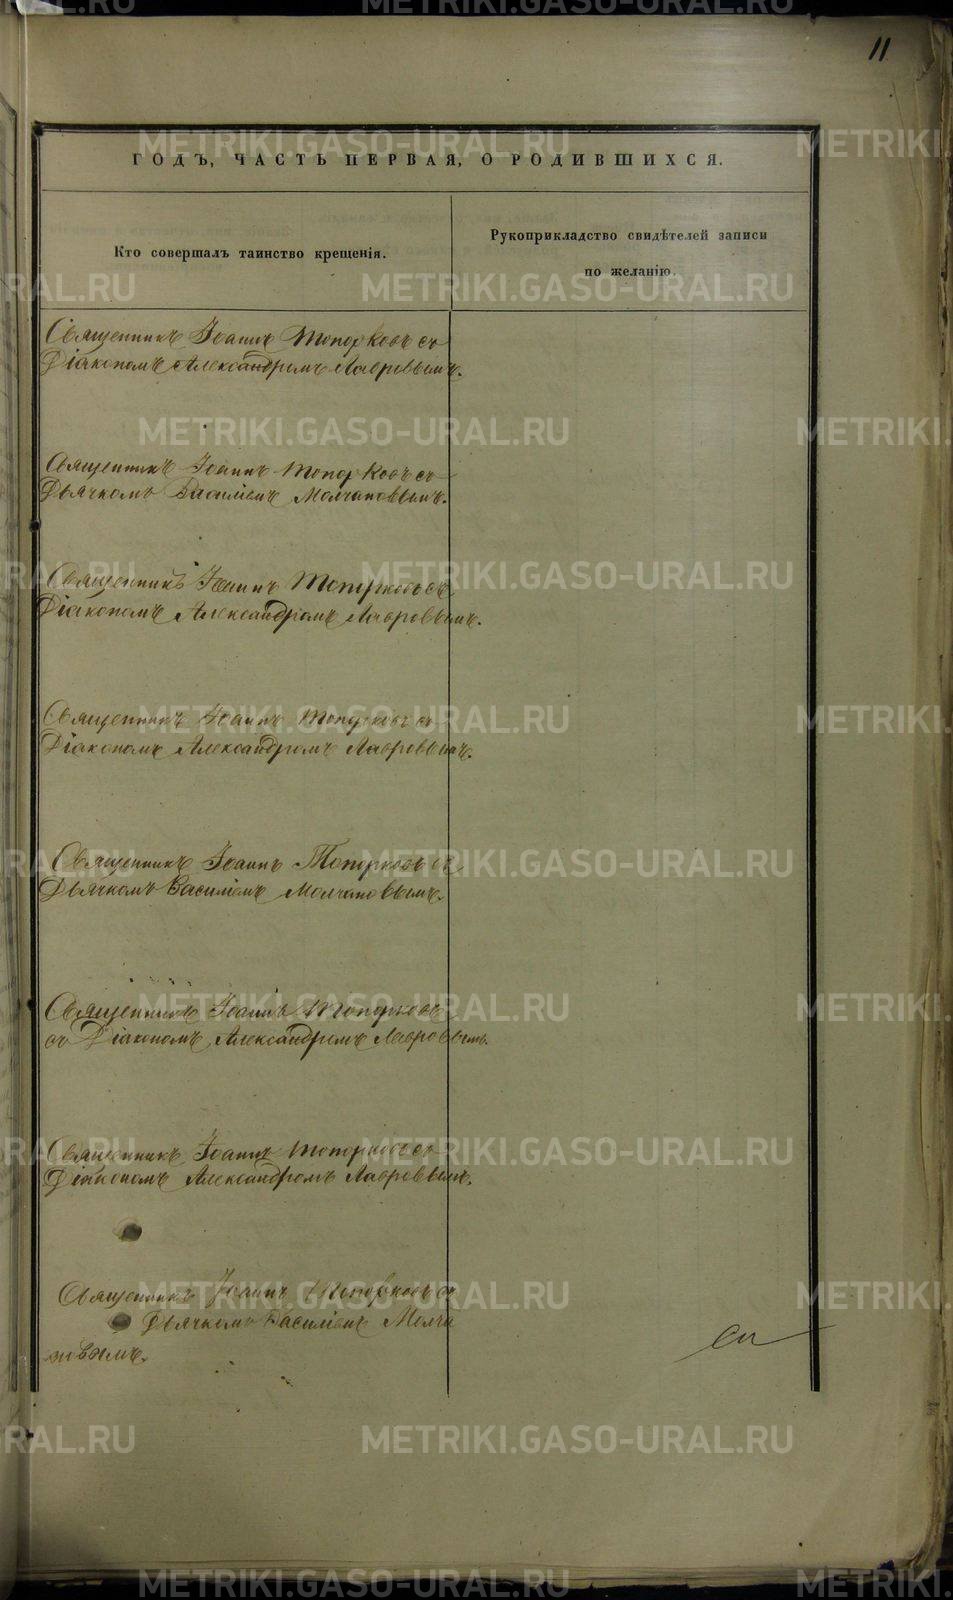 11
ГОДЪ, ЧАСТЬ ПЕРВАЯ, О РОДИВШИХСЯ.
Кто совершалъ таинство крещенія.
Рукоприкладство свидѣтелей записи
по желанію.
Священникъ Іоаннъ Топорковъ съ
Діакономъ Александромъ Лавровымъ.
Священникъ Іоаннъ Топорковъ съ
Дьячкомъ Василіемъ Молчановымъ.
Священникъ Іоаннъ Топорковъ съ
Діакономъ Александромъ Лавровымъ.
Священникъ Іоаннъ Топорковъ съ
Діакономъ Александромъ Лавровымъ.
Священникъ Іоаннъ Топорковъ съ
Дьячкомъ Василіемъ Молчановымъ.
Священникъ Іоаннъ Топорковъ
съ Діакономъ Александромъ Лавровымъ.
Священникъ Іоаннъ Топорковъ съ
Діакономъ Александромъ Лавровымъ.
Священникъ Іоаннъ Топорковъ съ
Дьячкомъ Василіемъ Молча
новымъ.
METRIKI.GASO-URAL.RU